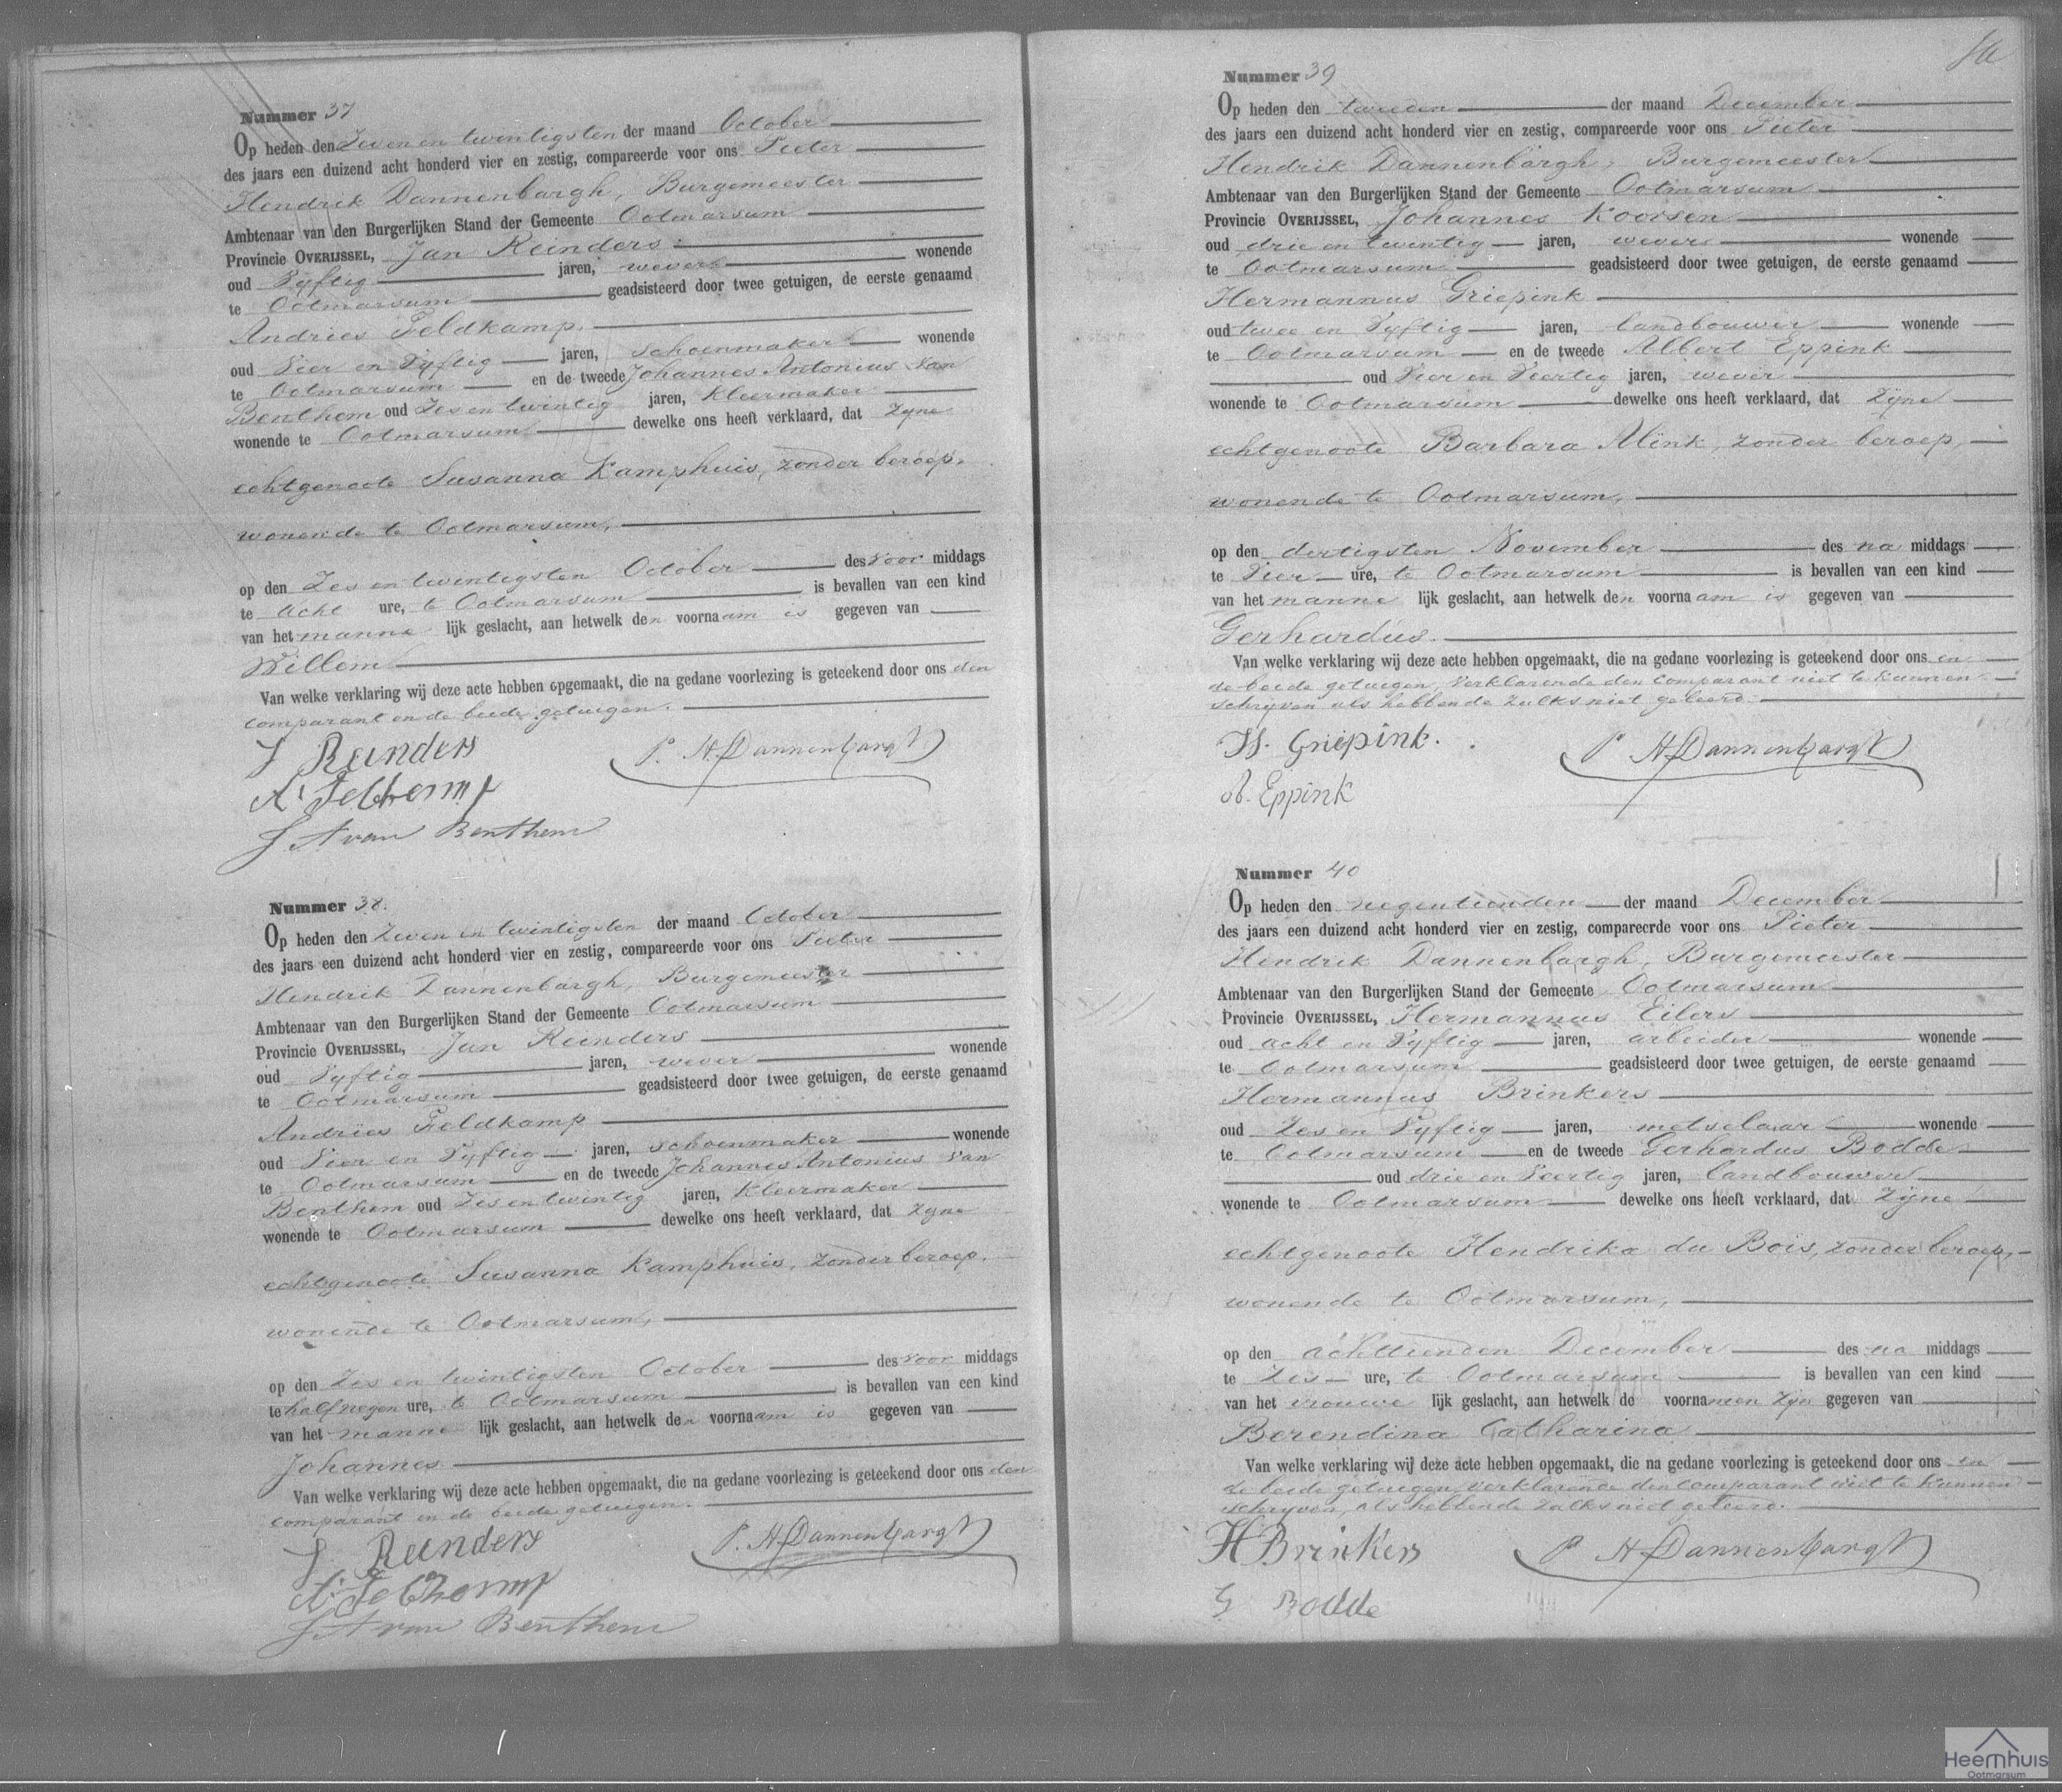 Nummer 37
Op heden den Zeven en twintigsten der maand October
des jaars een duizend acht honderd vier en zestig, compareerde voor ons Pieter
Hendrik Dannenbargh, Burgemeester
Ambtenaar van den Burgerlijken Stand der Gemeente Ootmarsum
Provincie OVERIJSSEL, Jan Reinders
oud Vyftig jaren, wever wonende
te Ootmarsum geadsisteerd door twee getuigen, de eerste genaamd
Andries Feldkamp
oud Vier en Vyftig jaren, schoenmaker wonende
te Ootmarsum en de tweede Johannes Antonius Van
Benthem oud Zes en twintig jaren, Kleermaker
wonende te Ootmarsum dewelke ons heeft verklaard, dat zyne
echtgenoote Susanna Kamphuis, zonder beroep,
wonende te Ootmarsum,
op den Zes en twintigsten October des voor middags
te acht ure, te Ootmarsum is bevallen van een kind
van het manne lijk geslacht, aan hetwelk den voornaam is gegeven van
Willem
Van welke verklaring wij deze acte hebben opgemaakt, die na gedane voorlezing is geteekend door ons den
comparant en de beide getuigen.
J Reinders P. H Dannenbargh
A. Feldkamp
J A van Benthem
Nummer 38.
Op heden den Zeven en twintigsten der maand October
des jaars een duizend acht honderd vier en zestig, compareerde voor ons Pieter
Hendrik Dannenbargh, Burgemeester
Ambtenaar van den Burgerlijken Stand der Gemeente Ootmarsum
Provincie OVERIJSSEL, Jan Reinders
oud Vyftig jaren, wever wonende
te Ootmarsum geadsisteerd door twee getuigen, de eerste genaamd
Andries Feldkamp
oud Vier en Vyftig jaren, schoenmaker wonende
te Ootmarsum en de tweede Johannes Antonius Van
Benthem oud Zes en twintig jaren, Kleermaker
wonende te Ootmarsum dewelke ons heeft verklaard, dat zyne
echtgenoote Susanna Kamphuis, zonder beroep,
wonende te Ootmarsum,
op den Zes en twintigsten October des voor middags
te half negen ure, te Ootmarsum is bevallen van een kind
van het manne lijk geslacht, aan hetwelk den voornaam is gegeven van
Johannes
Van welke verklaring wij deze acte hebben opgemaakt, die na gedane voorlezing is geteekend door ons den
comparant en de beide getuigen.
J Reinders P. H Dannenbargh
A. Feldkamp
J A van Benthem
Nummer 39
Op heden den tweeden der maand December
des jaars een duizend acht honderd vier en zestig, compareerde voor ons Pieter
Hendrik Dannenbargh, Burgemeester
Ambtenaar van den Burgerlijken Stand der Gemeente Ootmarsum
Provincie OVERIJSSEL, Johannes Koorsen
oud drie en twintig jaren, wever wonende
te Ootmarsum geadsisteerd door twee getuigen, de eerste genaamd
Hermannus Griepink
oud twee en Vyftig jaren, landbouwer wonende
te Ootmarsum en de tweede Albert Eppink
oud Vier en Veertig jaren, wever
wonende te Ootmarsum dewelke ons heeft verklaard, dat Zijne
echtgenoote Barbara Mink, zonder beroep,
wonende te Ootmarsum,
op den dertigsten November des na middags
te Vier ure, te Ootmarsum is bevallen van een kind
van het manne lijk geslacht, aan hetwelk den voornaam is gegeven van
Gerhardus.
Van welke verklaring wij deze acte hebben opgemaakt, die na gedane voorlezing is geteekend door ons en
de beide getuigen, verklarende den comparant niet te kunnen
schryven als hebbende zulks niet geleerd.
H. Griepink. P H Dannenbargh
A. Eppink
Nummer 40
Op heden den negentienden der maand December
des jaars een duizend acht honderd vier en zestig, compareerde voor ons Pieter
Hendrik Dannenbargh, Burgemeester
Ambtenaar van den Burgerlijken Stand der Gemeente Ootmarsum
Provincie OVERIJSSEL, Hermannus Eilers
oud acht en Vyftig jaren, arbeider wonende
te Ootmarsum geadsisteerd door twee getuigen, de eerste genaamd
Hermannus Brinkers
oud Zes en Vyftig jaren, metselaar wonende
te Ootmarsum en de tweede Gerhardus Bodde
oud drie en Veertig jaren, landbouwer
wonende te Ootmarsum dewelke ons heeft verklaard, dat Zijne
echtgenoote Hendrika du Bois, zonder beroep,
wonende te Ootmarsum,
op den achttienden December des na middags
te Zes ure, te Ootmarsum is bevallen van een kind
van het vrouwe lijk geslacht, aan hetwelk de voornamen zijn gegeven van
Berendina Catharina
Van welke verklaring wij deze acte hebben opgemaakt, die na gedane voorlezing is geteekend door ons en
de beide getuigen, verklarende den comparant niet te kunnen
schryven, als hebbende zulks niet geleerd.
H Brinkers P H Dannenbargh
G Bodde
Heemhuis
Ootmarsum